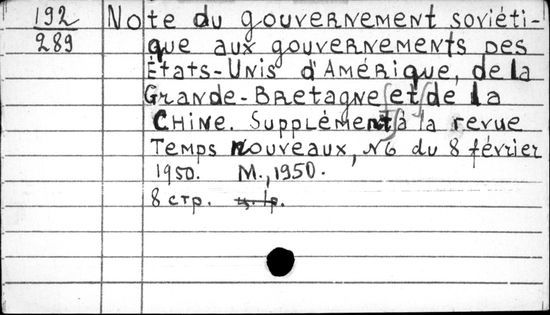 192 Note du gouvernement soviéti-
289 que aux gouvernements des
États-Unis d'Amérique, de la
Grande-Bretagne et de la
Chine. Supplément à la revue
Temps nouveaux, N6 du 8 février
1950. M., 1950.
8 стр. ц. 1р.